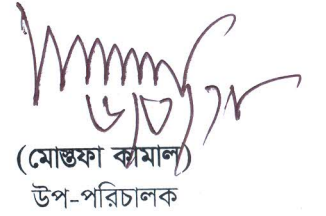 (মোস্তফা কামাল)
উপ-পরিচালক